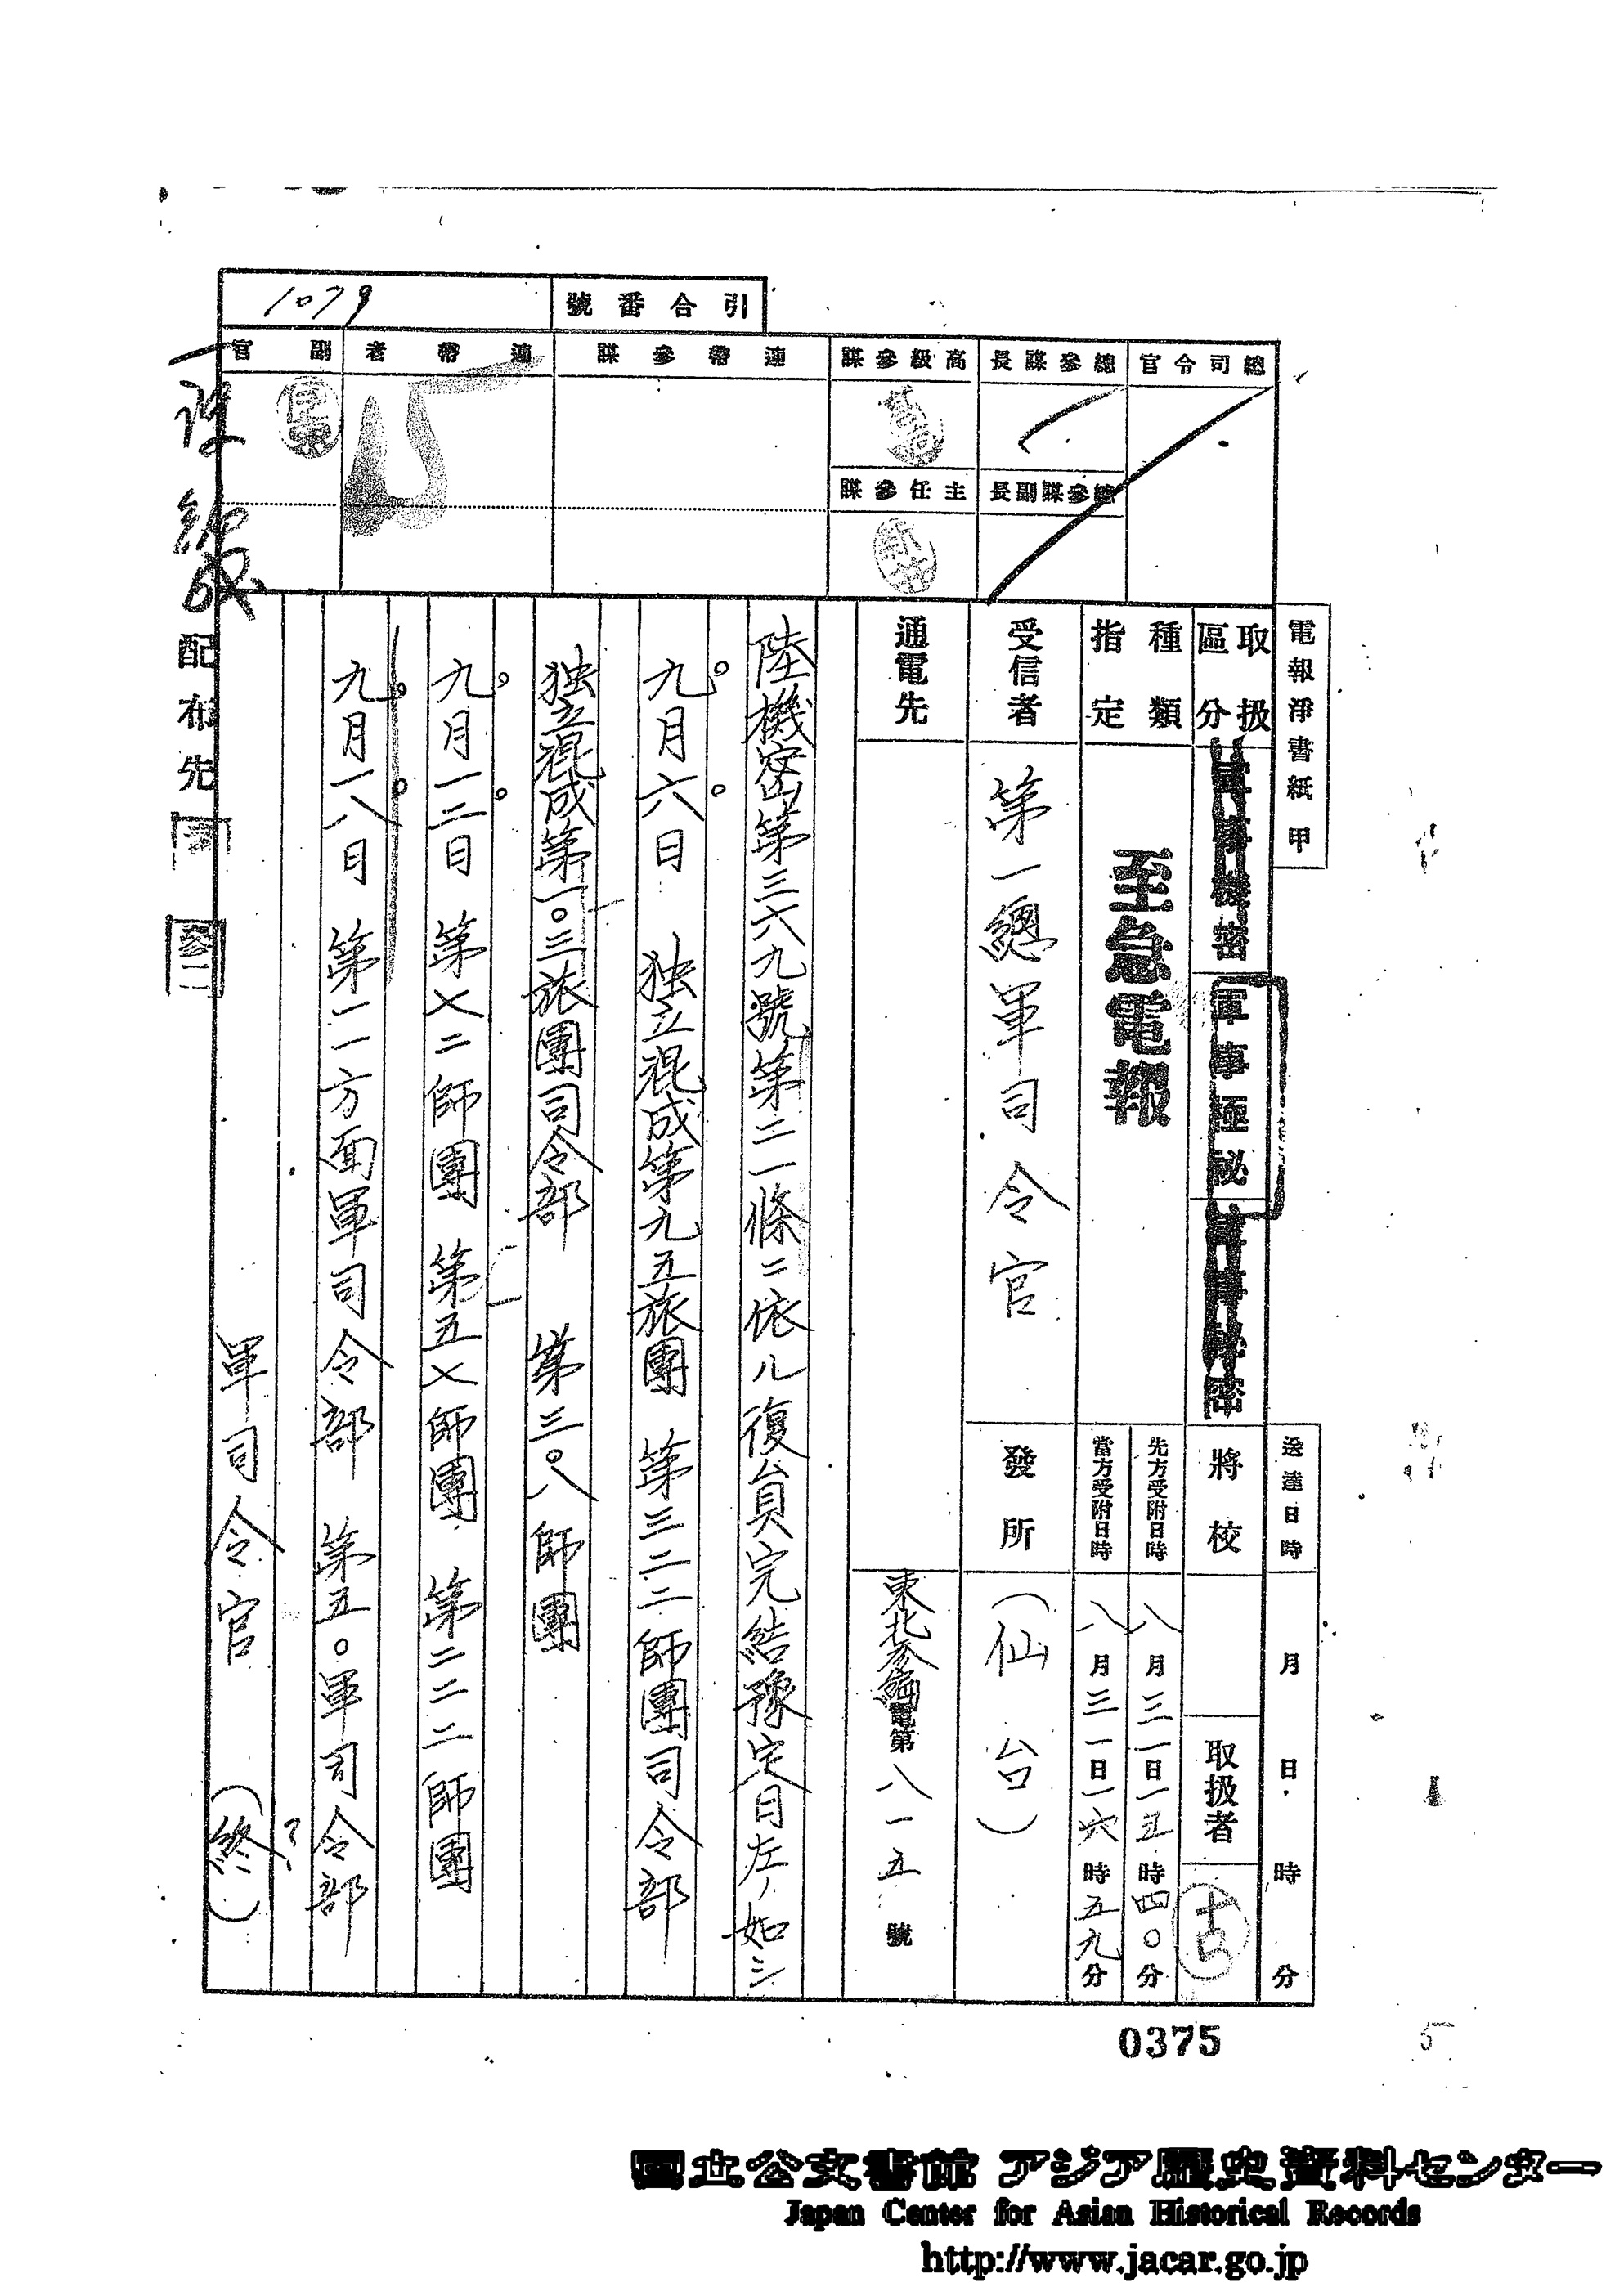 引合番號
1079
總司令官
總參謀長
高級參謀
連帶參謀
連帶者
副官
總參謀副長
主任參謀
電報淨書紙甲
送達日時 月 日 時 分
取扱區分
軍事機密 軍事極祕
將校
取扱者
種類指定
至急電報
先方受附日時 八月三一日一五時四〇分
當方受附日時 八月三一日一六時五九分
受信者 第一總軍司令官
發所 (仙台)
通電先
東北参編電第八一五號
陸機密第三六九號第二一條ニ依ル復員完結豫定日左ノ如シ
九月六日 独立混成第九五旅團 第三二二師團司令部
独立混成第一〇三旅團司令部 第三〇八師團
九月一二日 第七二師團 第五七師團 第二二二師團
九月一八日 第一一方面軍司令部 第五〇軍司令部
軍司令官 (終)
配布先
参二
0375
国立公文書館 アジア歴史資料センター
Japan Center for Asian Historical Records
http://www.jacar.go.jp